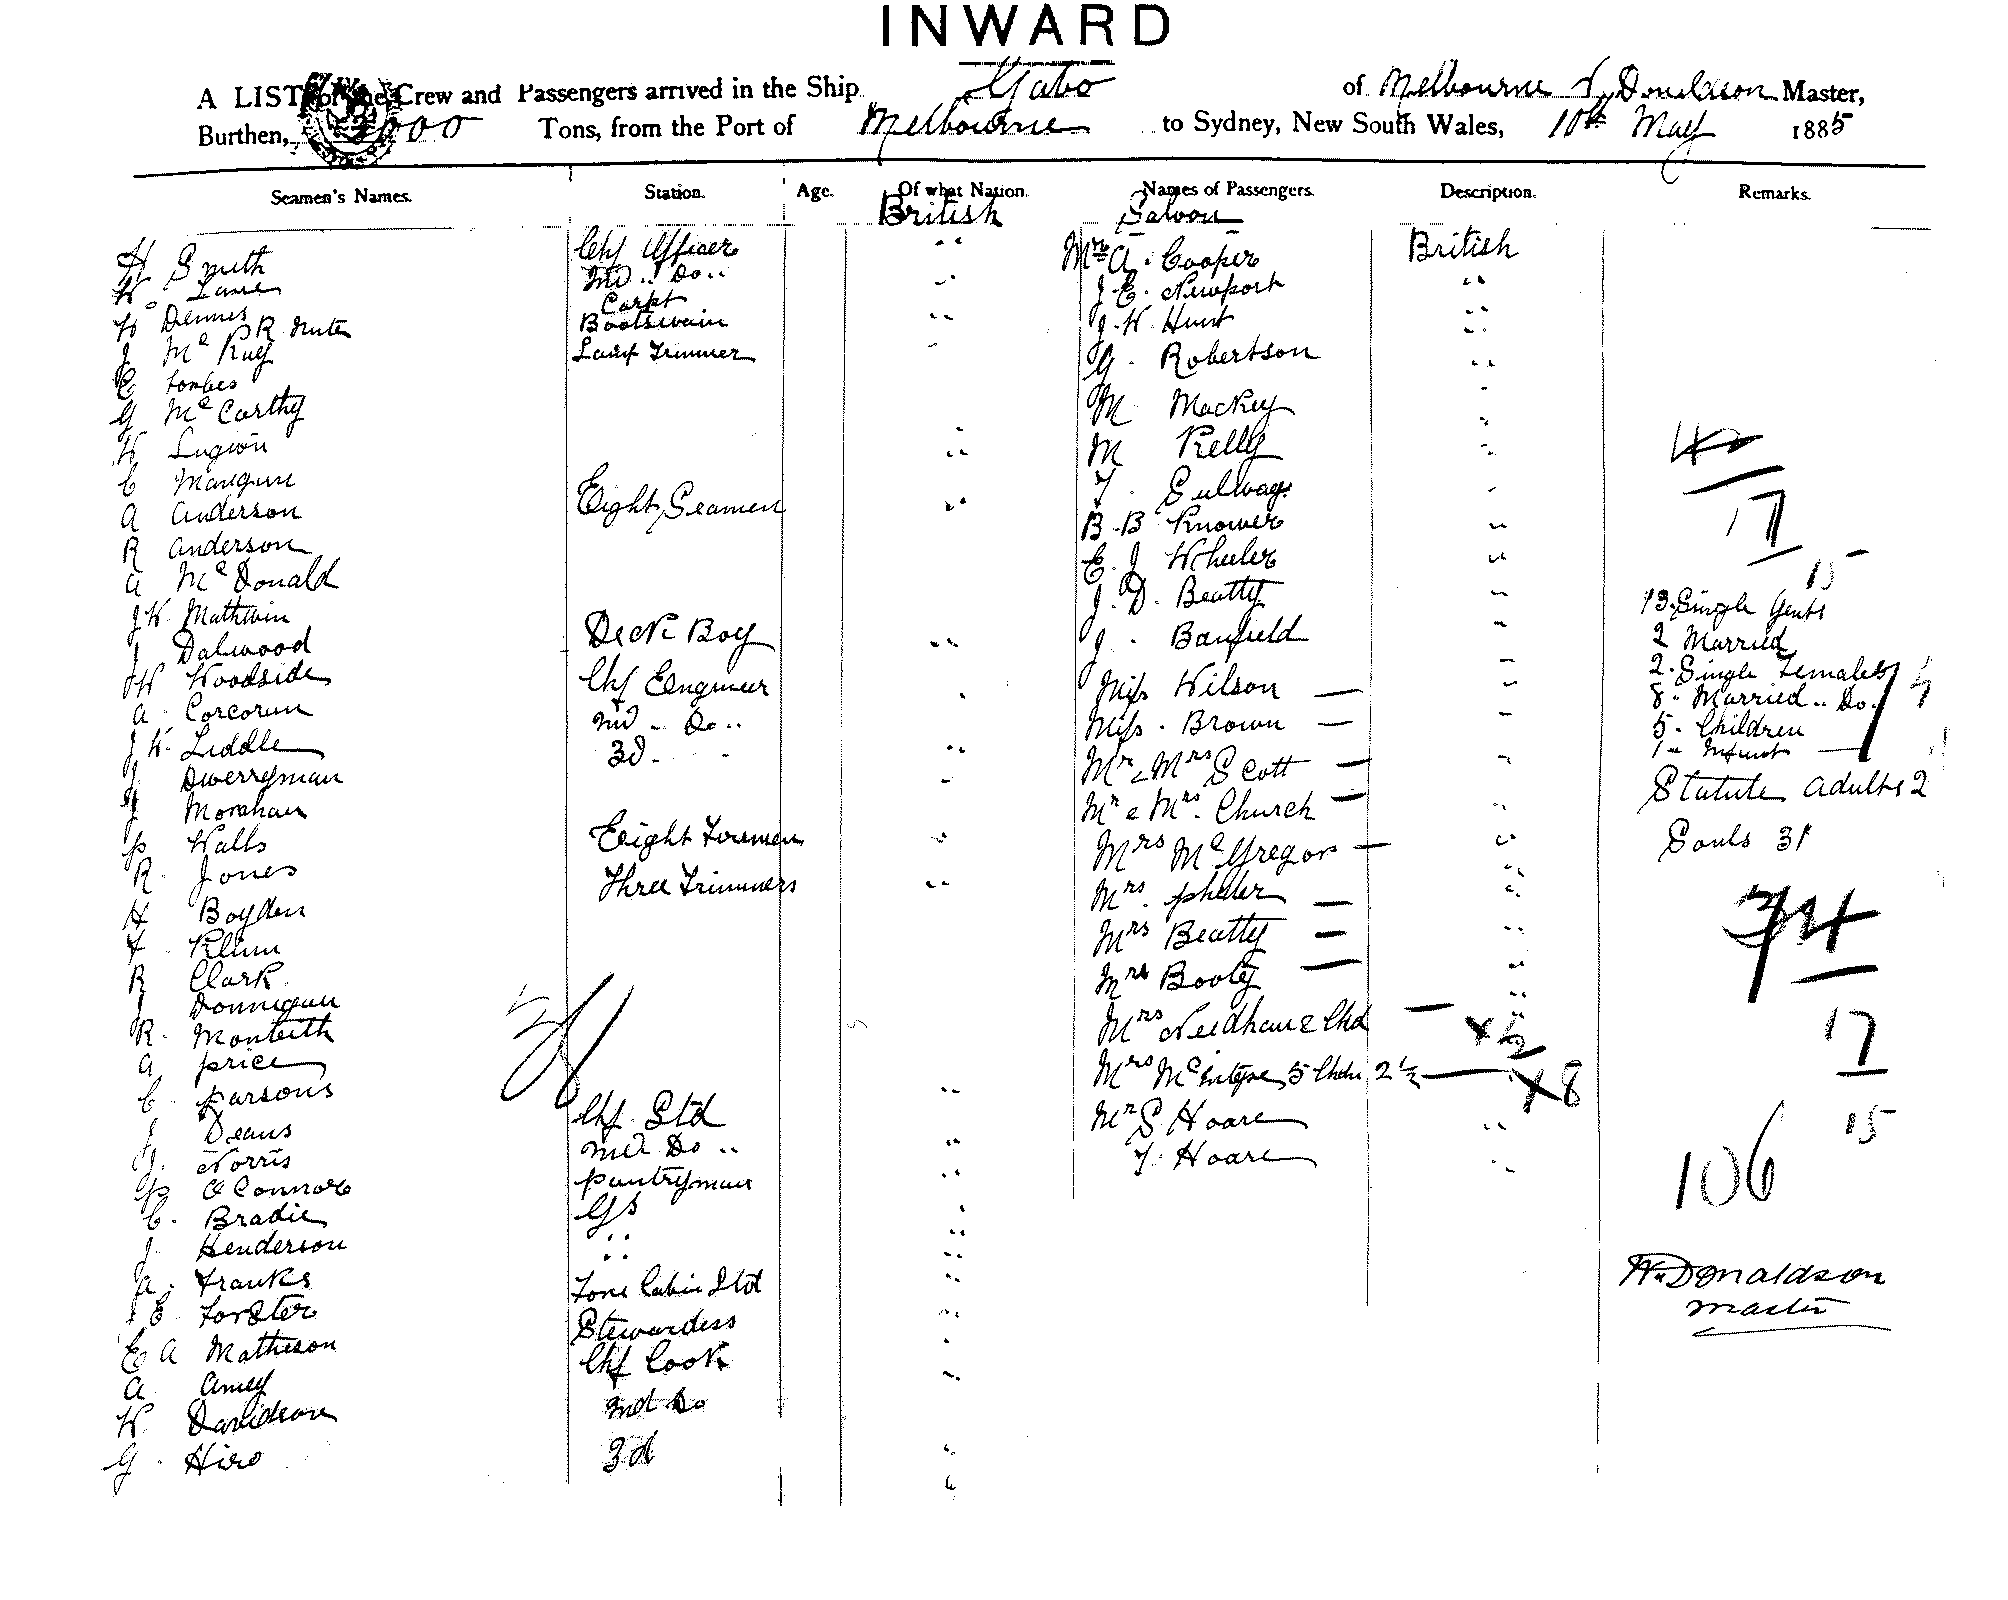 INWARD
A LIST of the Crew and Passengers arrived in the Ship Gabo of Melbourne W. Donaldson Master,
Burthen, 2000 Tons, from the Port of Melbourne to Sydney, New South Wales, 10th May 1885
Seamen's Names. Station. Age. Of what Nation. Names of Passengers. Description. Remarks.
British Saloon
H Smith Chf Officer " Mrs A. Cooper British
W Lane 2nd .. Do .. " J. E. Newport "
H Dennis Carpt " J. W. Hunt "
P R Nute Boatswain
J Mc Kay Lamp Trimmer " G. Robertson "
C Forbes
G Mc Carthy M Mackey "
W M Kelly "
C Mangun T.
A Anderson Eight Seamen " B. B Knower "
R Anderson E. J Wheeler "
A McDonald J. D. Beatty "
J W Mathwin
J Dalwood Deck Boy " J. Banfield "
W Woodside Chf Engineer " Miss Wilson —
A. Corcoran 2nd .. Do .. Miss. Brown —
J W. Liddle 3d. " Mr & Mrs Scott —
J Dwerryman Mr & Mrs. Church —
J Monahan
P Walls Eight Firemen " Mrs McGregor —
R. Jones Three Trimmers " Mrs.
H Boyden Mrs Beatty —
F
R Clark. Mrs Booty —
J Donnigan
R. Monteith Mrs Needham & Chd — x ½
A price Mrs McIntyre 5 Chdn 2 ½ — x 8
C. parsons
J Deans Chf. Std " Mr S Hoare "
J. Norris 2nd Do .. " T. Hoare "
P O Connor pantryman "
C. Bradie GS "
J. Henderson " "
A. Franks Fore Cabin Std "
E. Forster Stewardess "
E A Matheson Chf Cook "
A Amey 2nd Do
W. Davidson 3d "
G. Hiro
40
17
15
13. Single Gents
2 Married
2. Single Females
8. Married .. Do.
5. Children
1 " Infant
Statute Adults 2
Souls 31
34
17
15
106
W. Donaldson
master